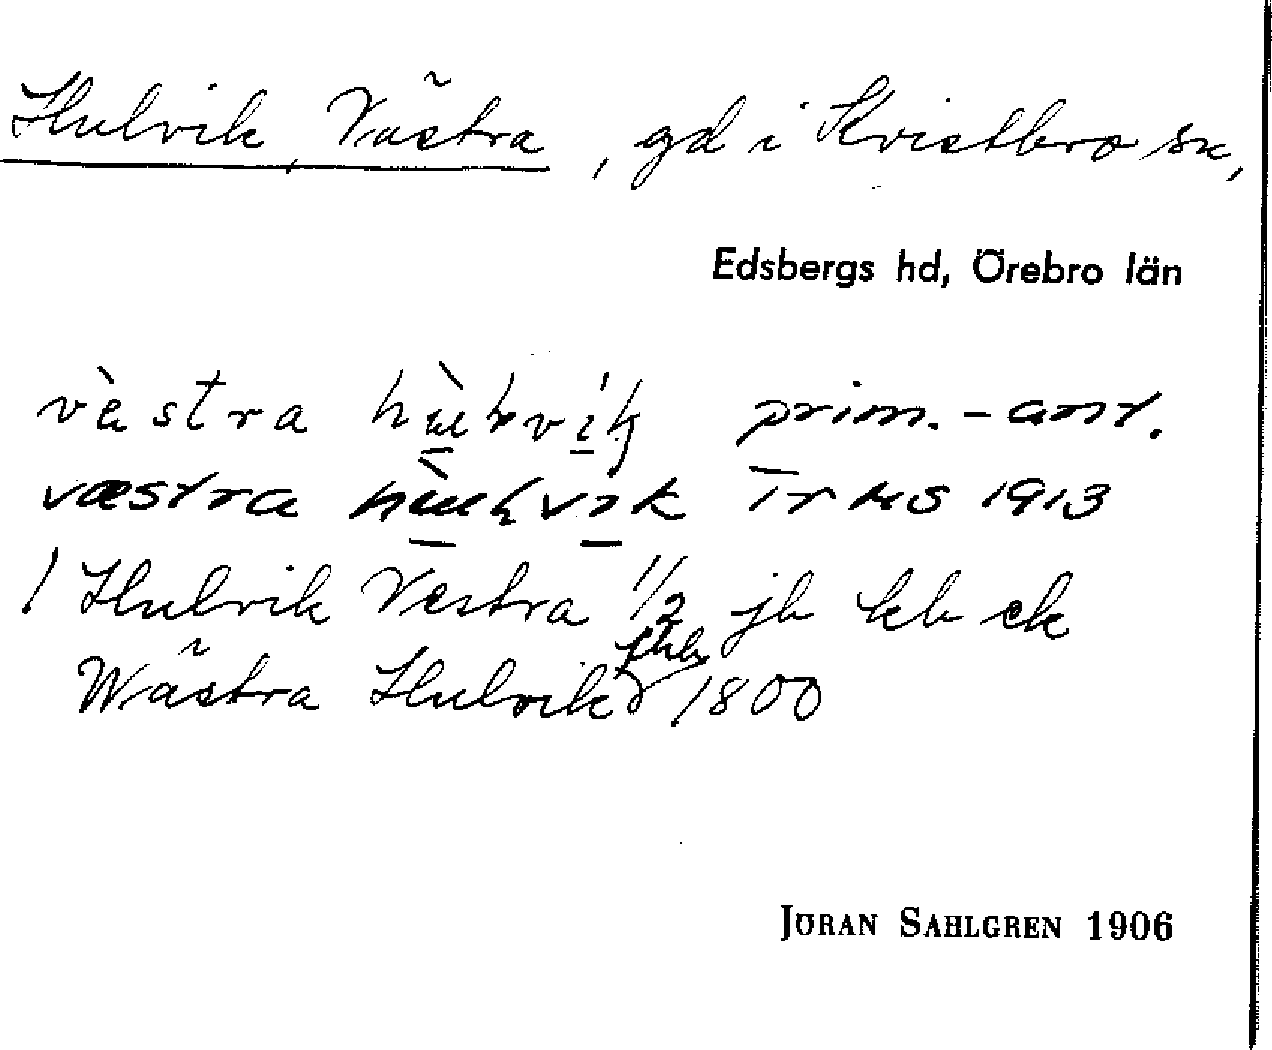 Hulvik, Västra, gd i Kvistbro sn,
Edsbergs hd, Örebro län
vèstra prim.-ant.
væstra 1913
1 Hulvik Vestra 1/2 jb kb ek
Wästra Hulvik fhb 1800
JÖRAN SAHLGREN 1906